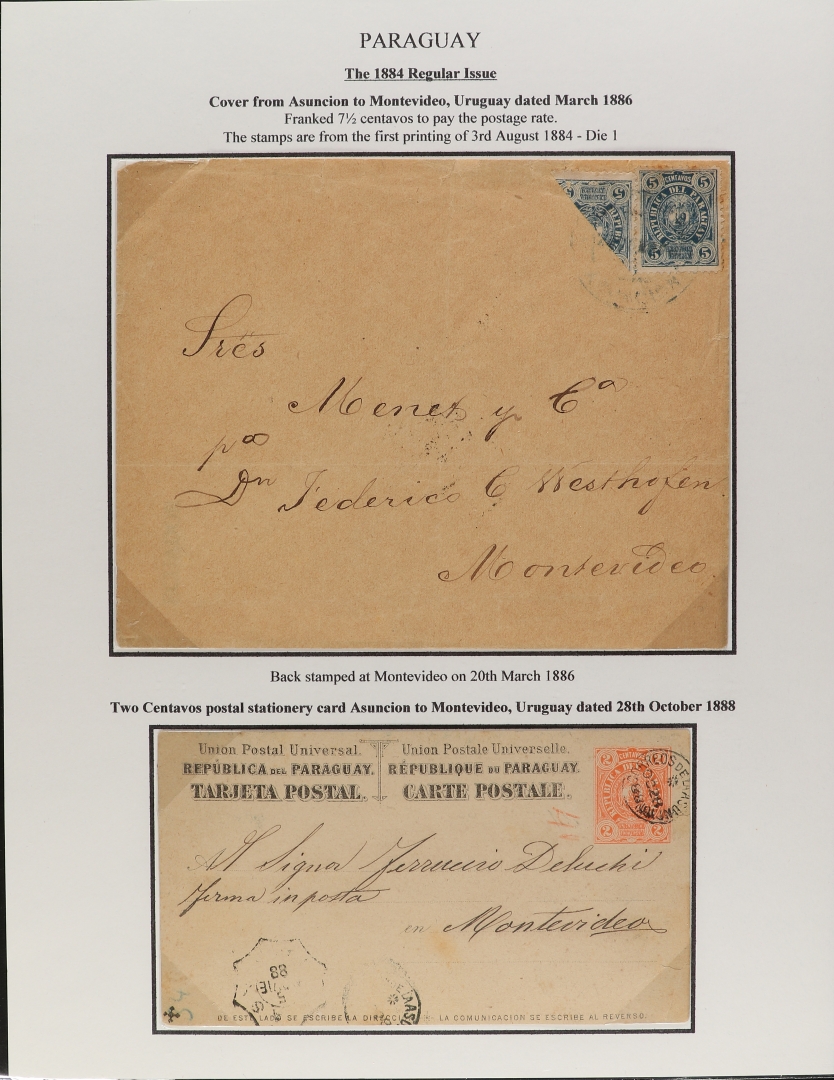 PARAGUAY
The 1884 Regular Issue
Cover from Asuncion to Montevideo, Uruguay dated March 1886
Franked 7½ centavos to pay the postage rate.
The stamps are from the first printing of 3rd August 1884 - Die 1
5 CENTAVOS 5
REPUBLICA DEL PARAGUAY
5 5
Srēs
Menet y Cª
pª
Dn Federico C Westhofen
Montevideo
Back stamped at Montevideo on 20th March 1886
Two Centavos postal stationery card Asuncion to Montevideo, Uruguay dated 28th October 1888
Union Postal Universal. Union Postale Universelle.
REPÚBLICA DEL PARAGUAY. RÉPUBLIQUE DU PARAGUAY.
TARJETA POSTAL. CARTE POSTALE.
2 CENTAVOS
2 2
Al Signor Ferruccio Deluchi
ferma in posta
en Montevideo
88
DE ESTE LADO SE ESCRIBE LA DIRECCION - LA COMUNICACION SE ESCRIBE AL REVERSO.